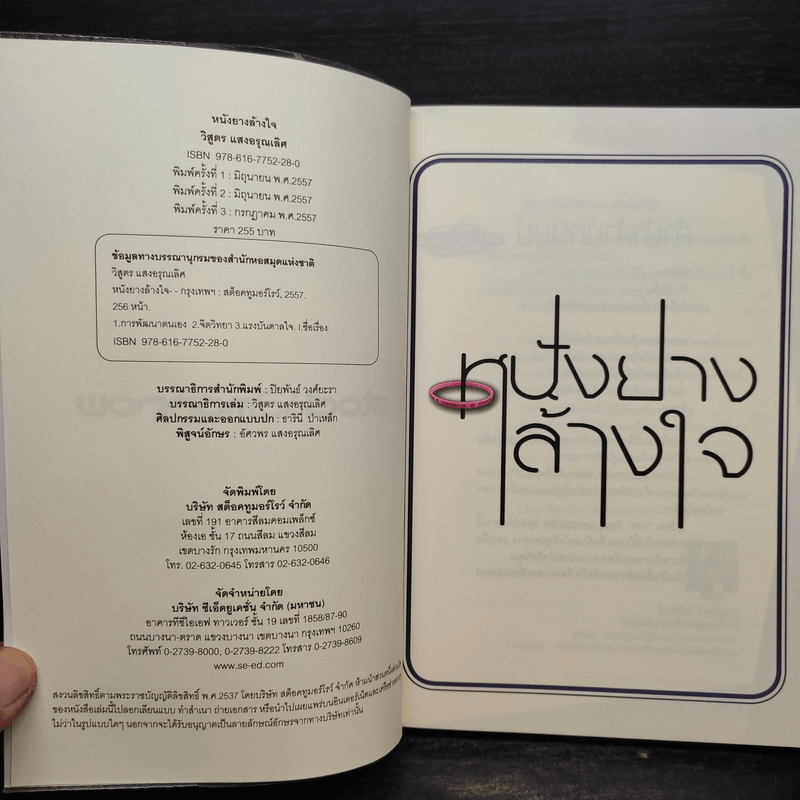 หนังยางล้างใจ
วิสูตร แสงอรุณเลิศ
ISBN 978-616-7752-28-0
พิมพ์ครั้งที่ 1 : มิถุนายน พ.ศ.2557
พิมพ์ครั้งที่ 2 : มิถุนายน พ.ศ.2557
พิมพ์ครั้งที่ 3 : กรกฎาคม พ.ศ.2557
ราคา 255 บาท
ข้อมูลทางบรรณานุกรมของสำนักหอสมุดแห่งชาติ
วิสูตร แสงอรุณเลิศ
หนังยางล้างใจ- - กรุงเทพฯ : สต็อคทูมอร์โรว์, 2557.
256 หน้า.
1.การพัฒนาตนเอง 2.จิตวิทยา 3.แรงบันดาลใจ. I.ชื่อเรื่อง
ISBN 978-616-7752-28-0
บรรณาธิการสำนักพิมพ์ : ปิยพันธ์ วงศ์ยะรา
บรรณาธิการเล่ม : วิสูตร แสงอรุณเลิศ
ศิลปกรรมและออกแบบปก : ธารินี ปาเหล็ก
พิสูจน์อักษร : อัศวพร แสงอรุณเลิศ
จัดพิมพ์โดย
บริษัท สต็อคทูมอร์โรว์ จำกัด
เลขที่ 191 อาคารสีลมคอมเพล็กซ์
ห้องเอ ชั้น 17 ถนนสีลม แขวงสีลม
เขตบางรัก กรุงเทพมหานคร 10500
โทร. 02-632-0645 โทรสาร 02-632-0646
จัดจำหน่ายโดย
บริษัท ซีเอ็ดยูเคชั่น จำกัด (มหาชน)
อาคารทีซีไอเอฟ ทาวเวอร์ ชั้น 19 เลขที่ 1858/87-90
ถนนบางนา-ตราด แขวงบางนา เขตบางนา กรุงเทพฯ 10260
โทรศัพท์ 0-2739-8000, 0-2739-8222 โทรสาร 0-2739-8609
www.se-ed.com
สงวนลิขสิทธิ์ตามพระราชบัญญัติลิขสิทธิ์ พ.ศ.2537 โดยบริษัท สต็อคทูมอร์โรว์ จำกัด ห้ามนำส่วนหนึ่งส่วนใด
ของหนังสือเล่มนี้ไปลอกเลียนแบบ ทำสำเนา ถ่ายเอกสาร หรือนำไปเผยแพร่บนอินเตอร์เน็ตและเครือข่ายต่างๆ
ไม่ว่าในรูปแบบใดๆ นอกจากจะได้รับอนุญาตเป็นลายลักษณ์อักษรจากทางบริษัทเท่านั้น
หนังยาง
ล้างใจ